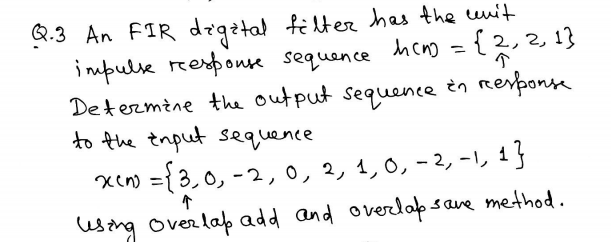 Q.3 An FIR digital filter has the unit
impulse response sequence h(n) = { 2, 2, 1}
↑
Determine the output sequence in response
to the input sequence
x(n) = { 3, 0, -2, 0, 2, 1, 0, -2, -1, 1 }
↑
using overlap add and overlap save method.